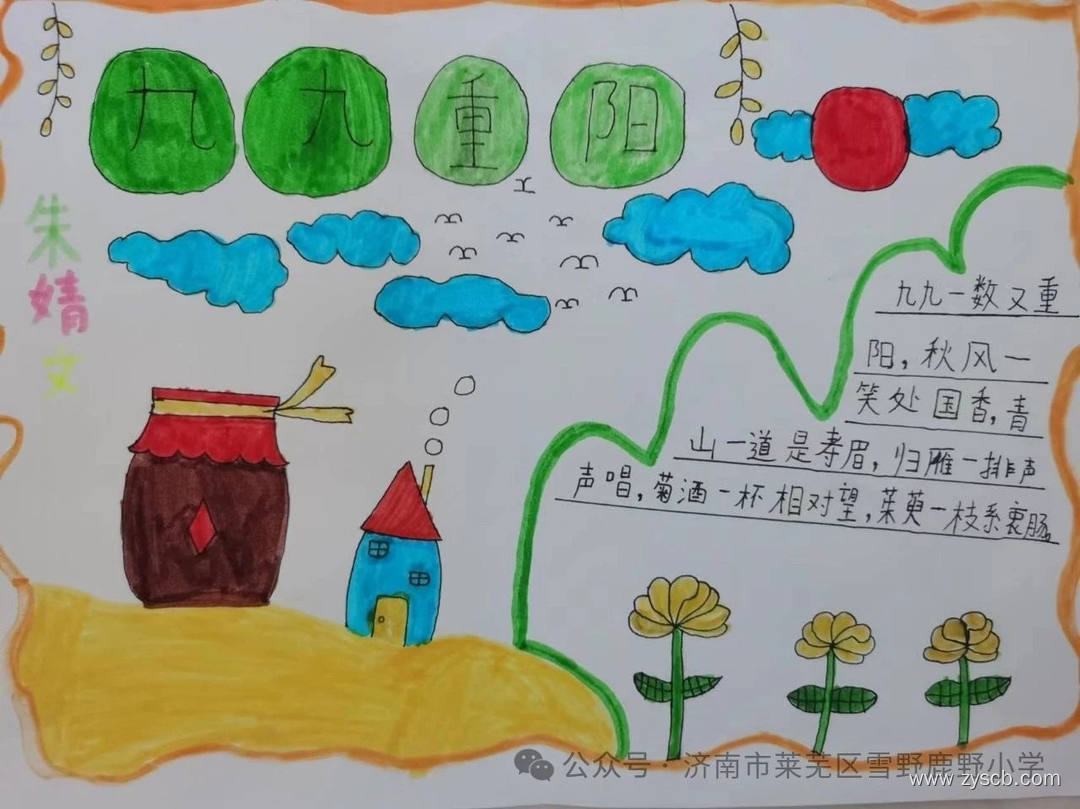 九九重阳
朱
婧
文
九九一数又重
阳，秋风一
笑处国香，青
山一道是寿眉，归雁一排声
声唱，菊酒一杯相对望，茱萸一枝系衷肠。
公众号·济南市莱芜区雪野鹿野小学
www.zyscb.com